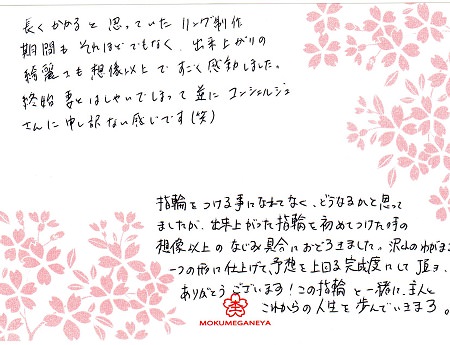 長くかかると思っていたリング制作
期間もそれほどでもなく、出来上がりの
綺麗さも想像以上ですごく感動しました。
終始妻とはしゃいでしまって並にコンシェルジュ
さんに申し訳ない感じです(笑)
指輪をつける事になれてなく、どうなるかと思って
ましたが、出来上がった指輪を初めてつけた時の
想像以上のなじみ具合におどろきました。沢山のわがまま
一つの形に仕上げて、予想を上回る完成度にして頂き、
ありがとうございます!この指輪と一緒に、主人と
これからの人生を歩んでいきます。
MOKUMEGANEYA